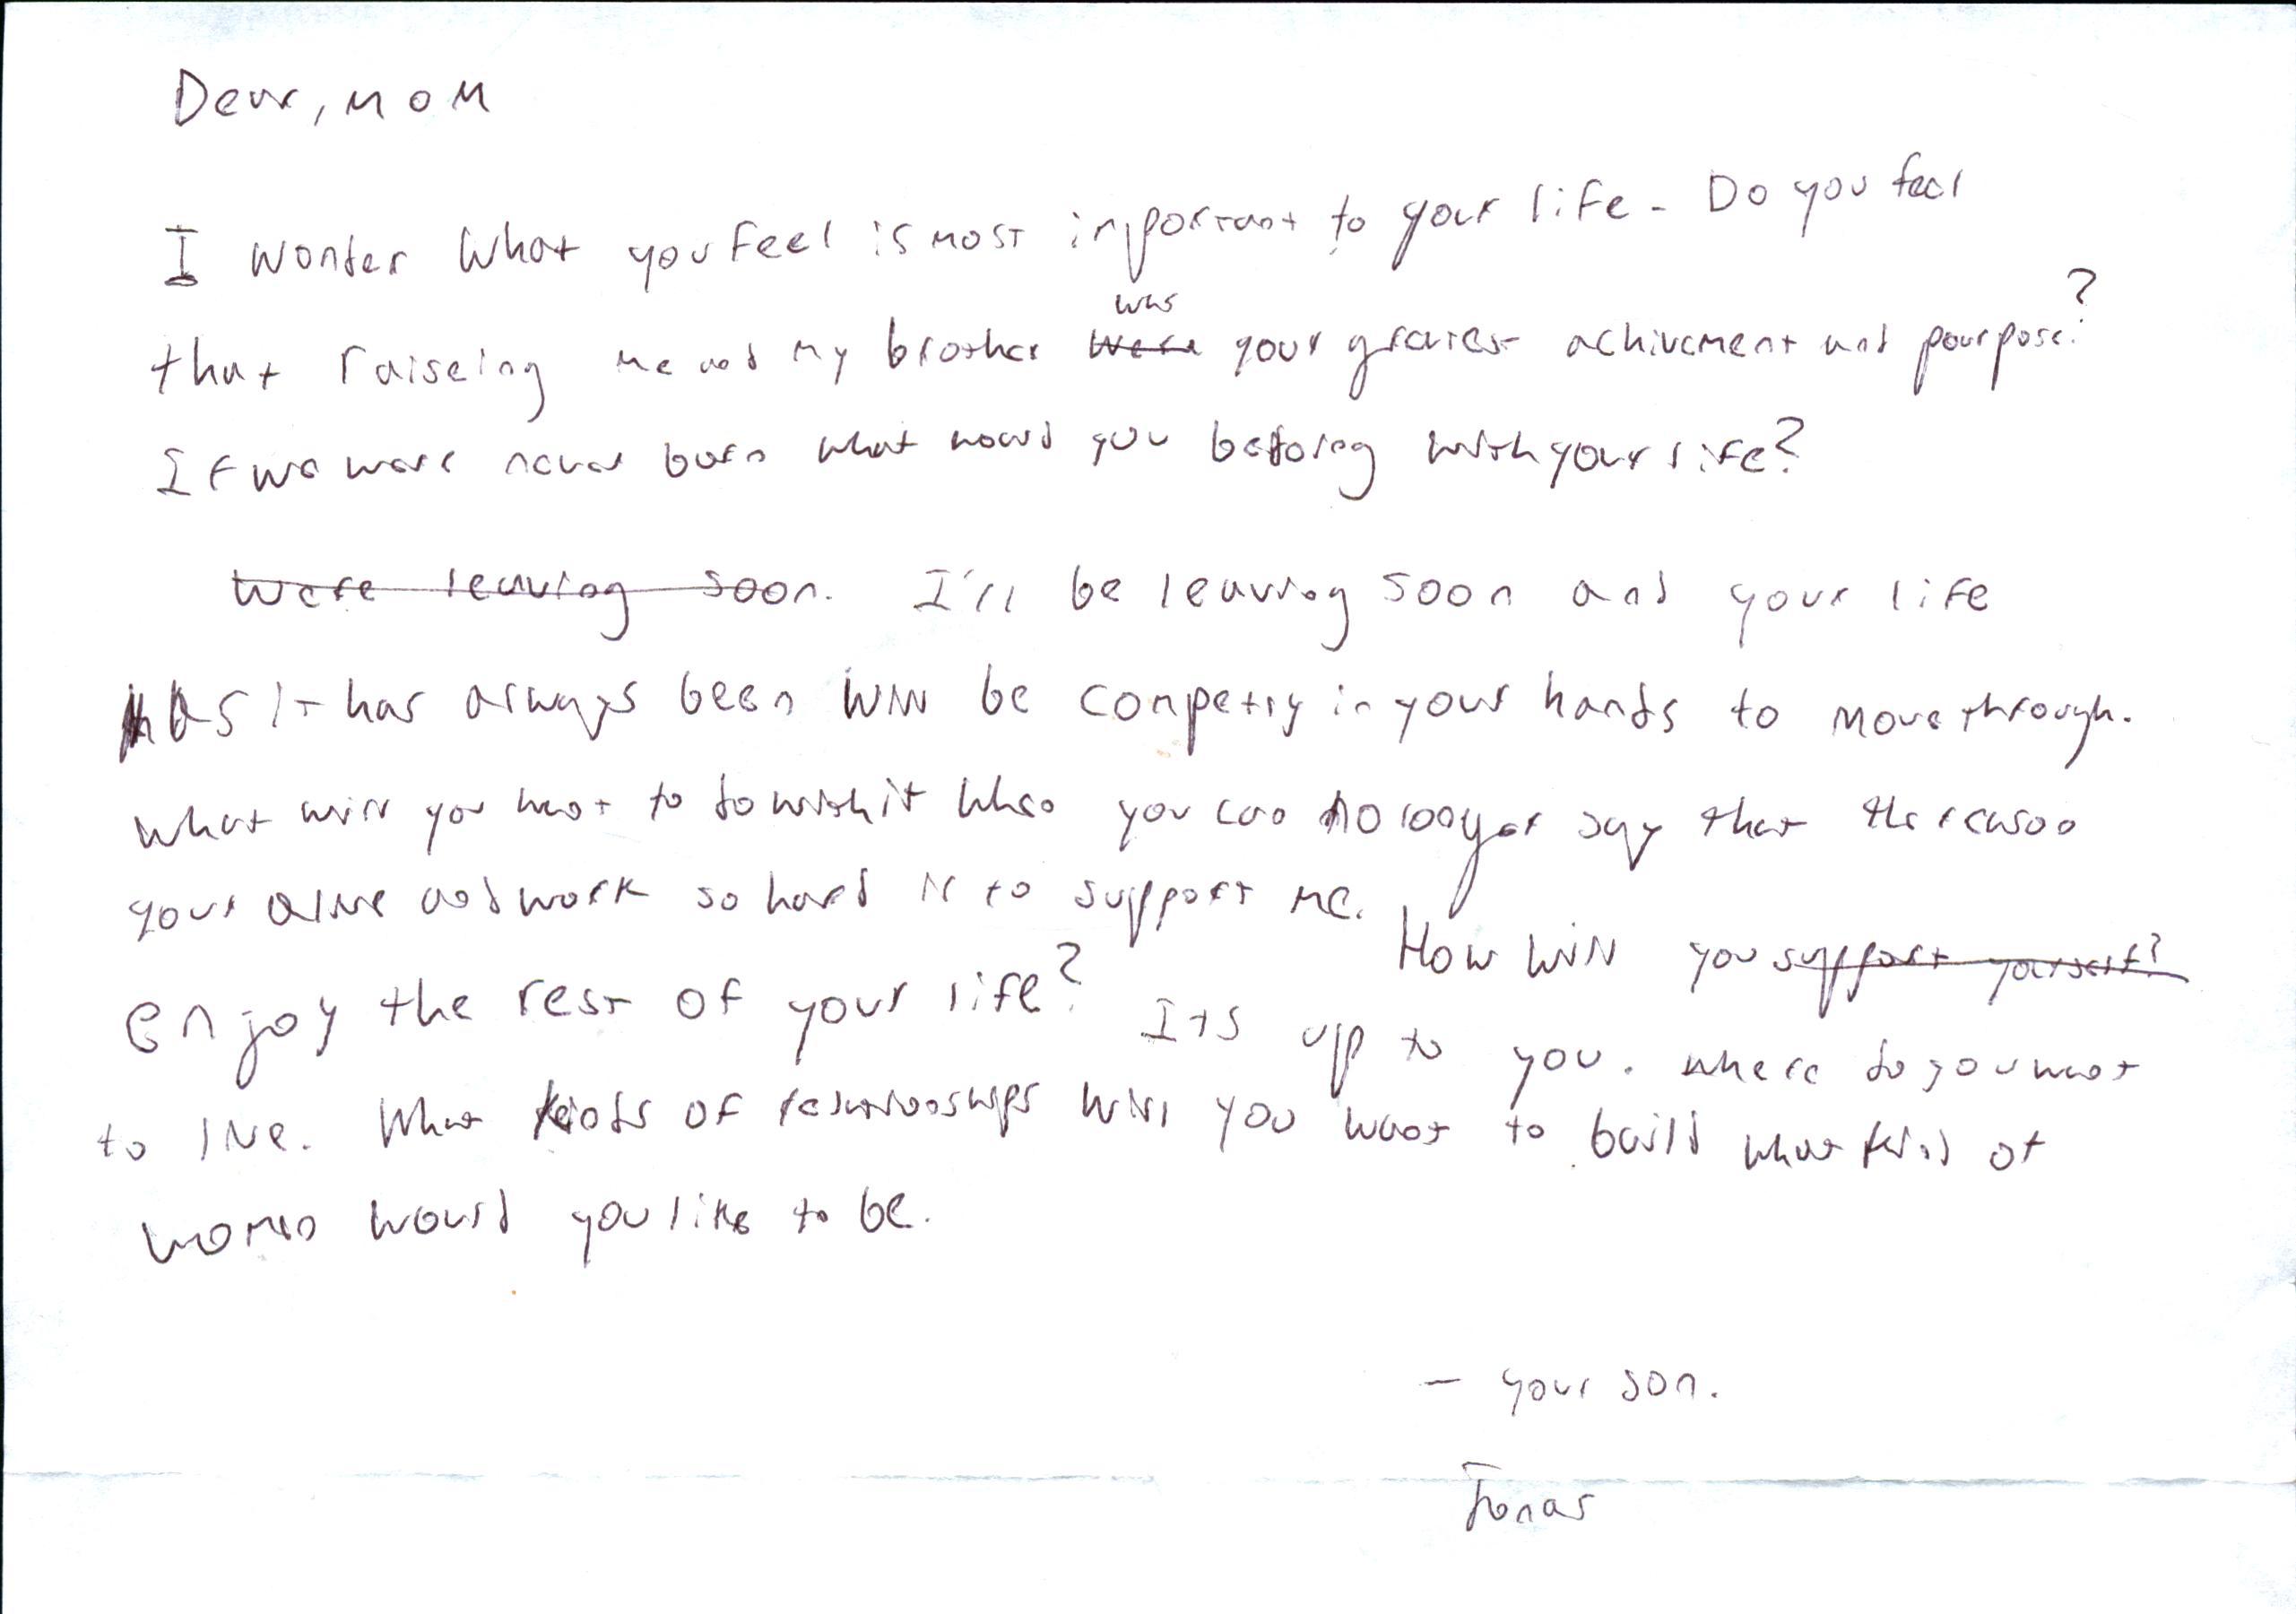 Dear, Mom
I wonder what you feel is most important to your life. Do you feel
that raiseing me and my brother were was your greatest achivement and pourpose?
If we were never born what would you be doing with your life?
Were leaving soon. I'll be leaving soon and your life
as it has always been will be competly in your hands to move through.
What will you want to do with it when you can no longer say that the reason
your alive and work so hard is to support me. How will you support yourself?
enjoy the rest of your life? Its up to you. where do you want
to live. What kinds of relationships will you want to build what kind of
women would you like to be.
– your son.
Jonas